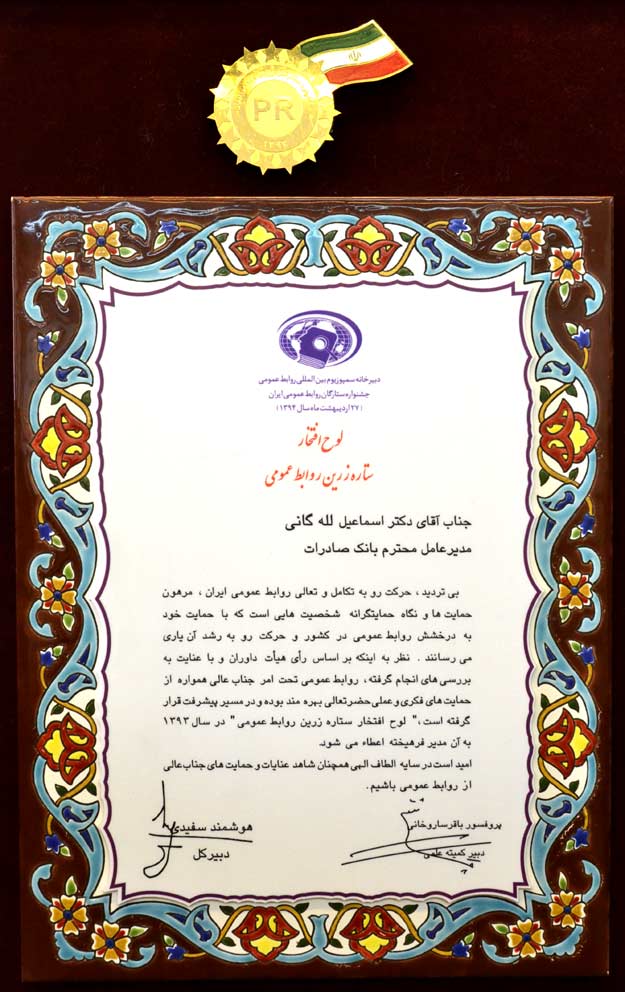 PR
۱۳۹۳
دبیرخانه سمپوزیوم بین المللی روابط عمومی
جشنواره ستارگان روابط عمومی ایران
(۲۷ اردیبهشت ماه سال ۱۳۹۴)
لوح افتخار
ستاره زرین روابط عمومی
جناب آقای دکتر اسماعیل لله گانی
مدیرعامل محترم بانک صادرات
بی تردید، حرکت رو به تکامل و تعالی روابط عمومی ایران، مرهون
حمایت ها و نگاه حمایتگرانه شخصیت هایی است که با حمایت خود
به درخشش روابط عمومی در کشور و حرکت رو به رشد آن یاری
می رسانند. نظر به اینکه بر اساس رأی هیأت داوران و با عنایت به
بررسی های انجام گرفته، روابط عمومی تحت امر جناب عالی همواره از
حمایت های فکری و عملی حضرتعالی بهره مند بوده و در مسیر پیشرفت قرار
گرفته است،" لوح افتخار ستاره زرین روابط عمومی" در سال ۱۳۹۳
به آن مدیر فرهیخته اعطاء می شود.
امید است در سایه الطاف الهی همچنان شاهد عنایات و حمایت های جناب عالی
از روابط عمومی باشیم.
پروفسور باقر ساروخانی
دبیر کمیته علمی
هوشمند سفیدی
دبیر کل